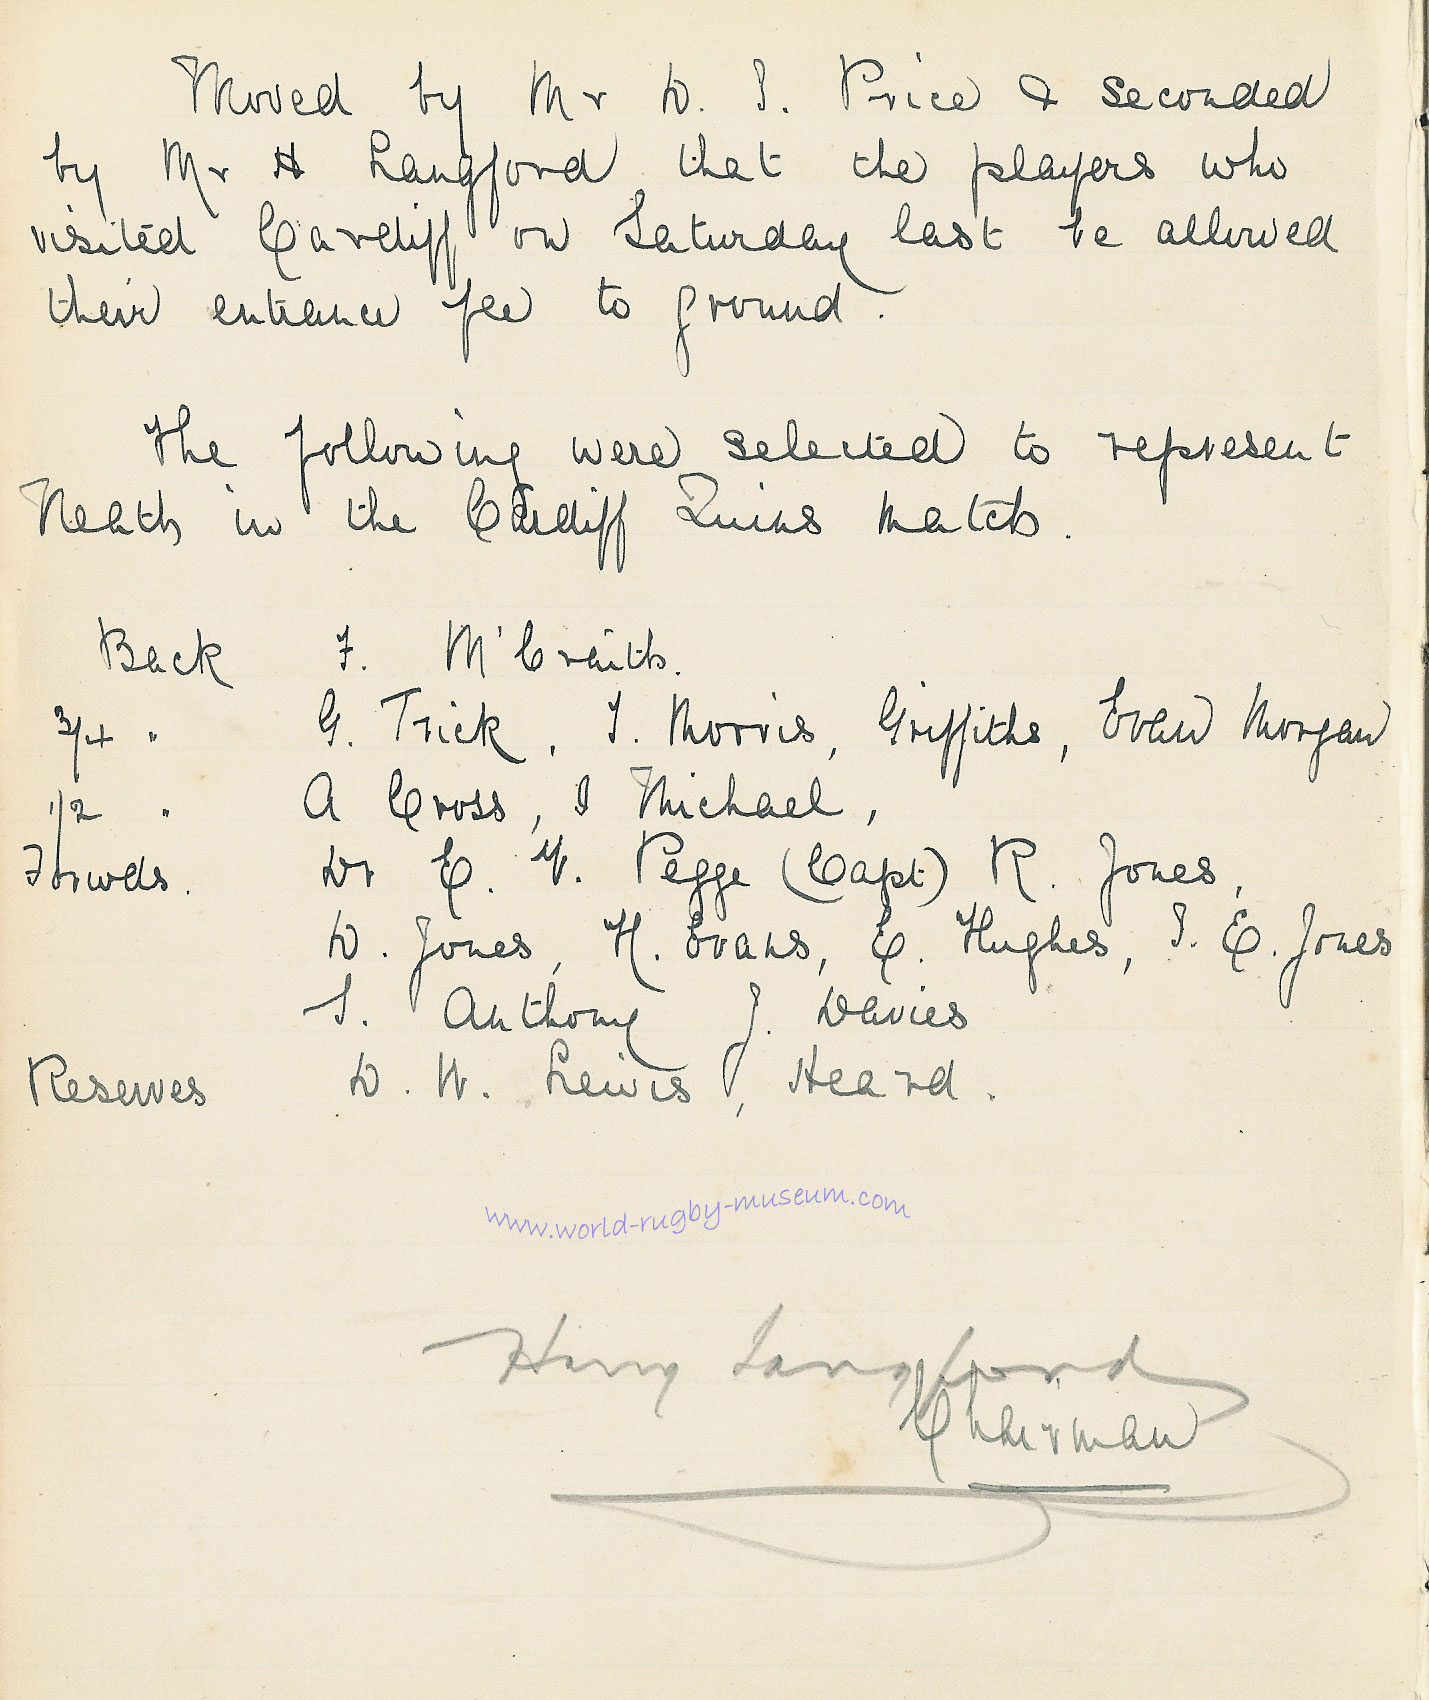 Moved by Mr D. I. Price & seconded
by Mr H Langford that the players who
visited Cardiff on Saturday last be allowed
their entrance fee to ground.
The following were selected to represent
Neath in the Cardiff Quins match.
Back F. M'Craith.
3/4 " G. Trick, T. Morris, Griffiths, Evan Morgan
1/2 " A Cross, I Michael,
Forwds. Dr E. V. Pegge (Capt) R. Jones,
D. Jones, H. Evans, E. Hughes, I. E. Jones
S. Anthony J. Davies
Reserves D. W. Lewis, Heard.
www.world-rugby-museum.com
Harry Langford
Chairman